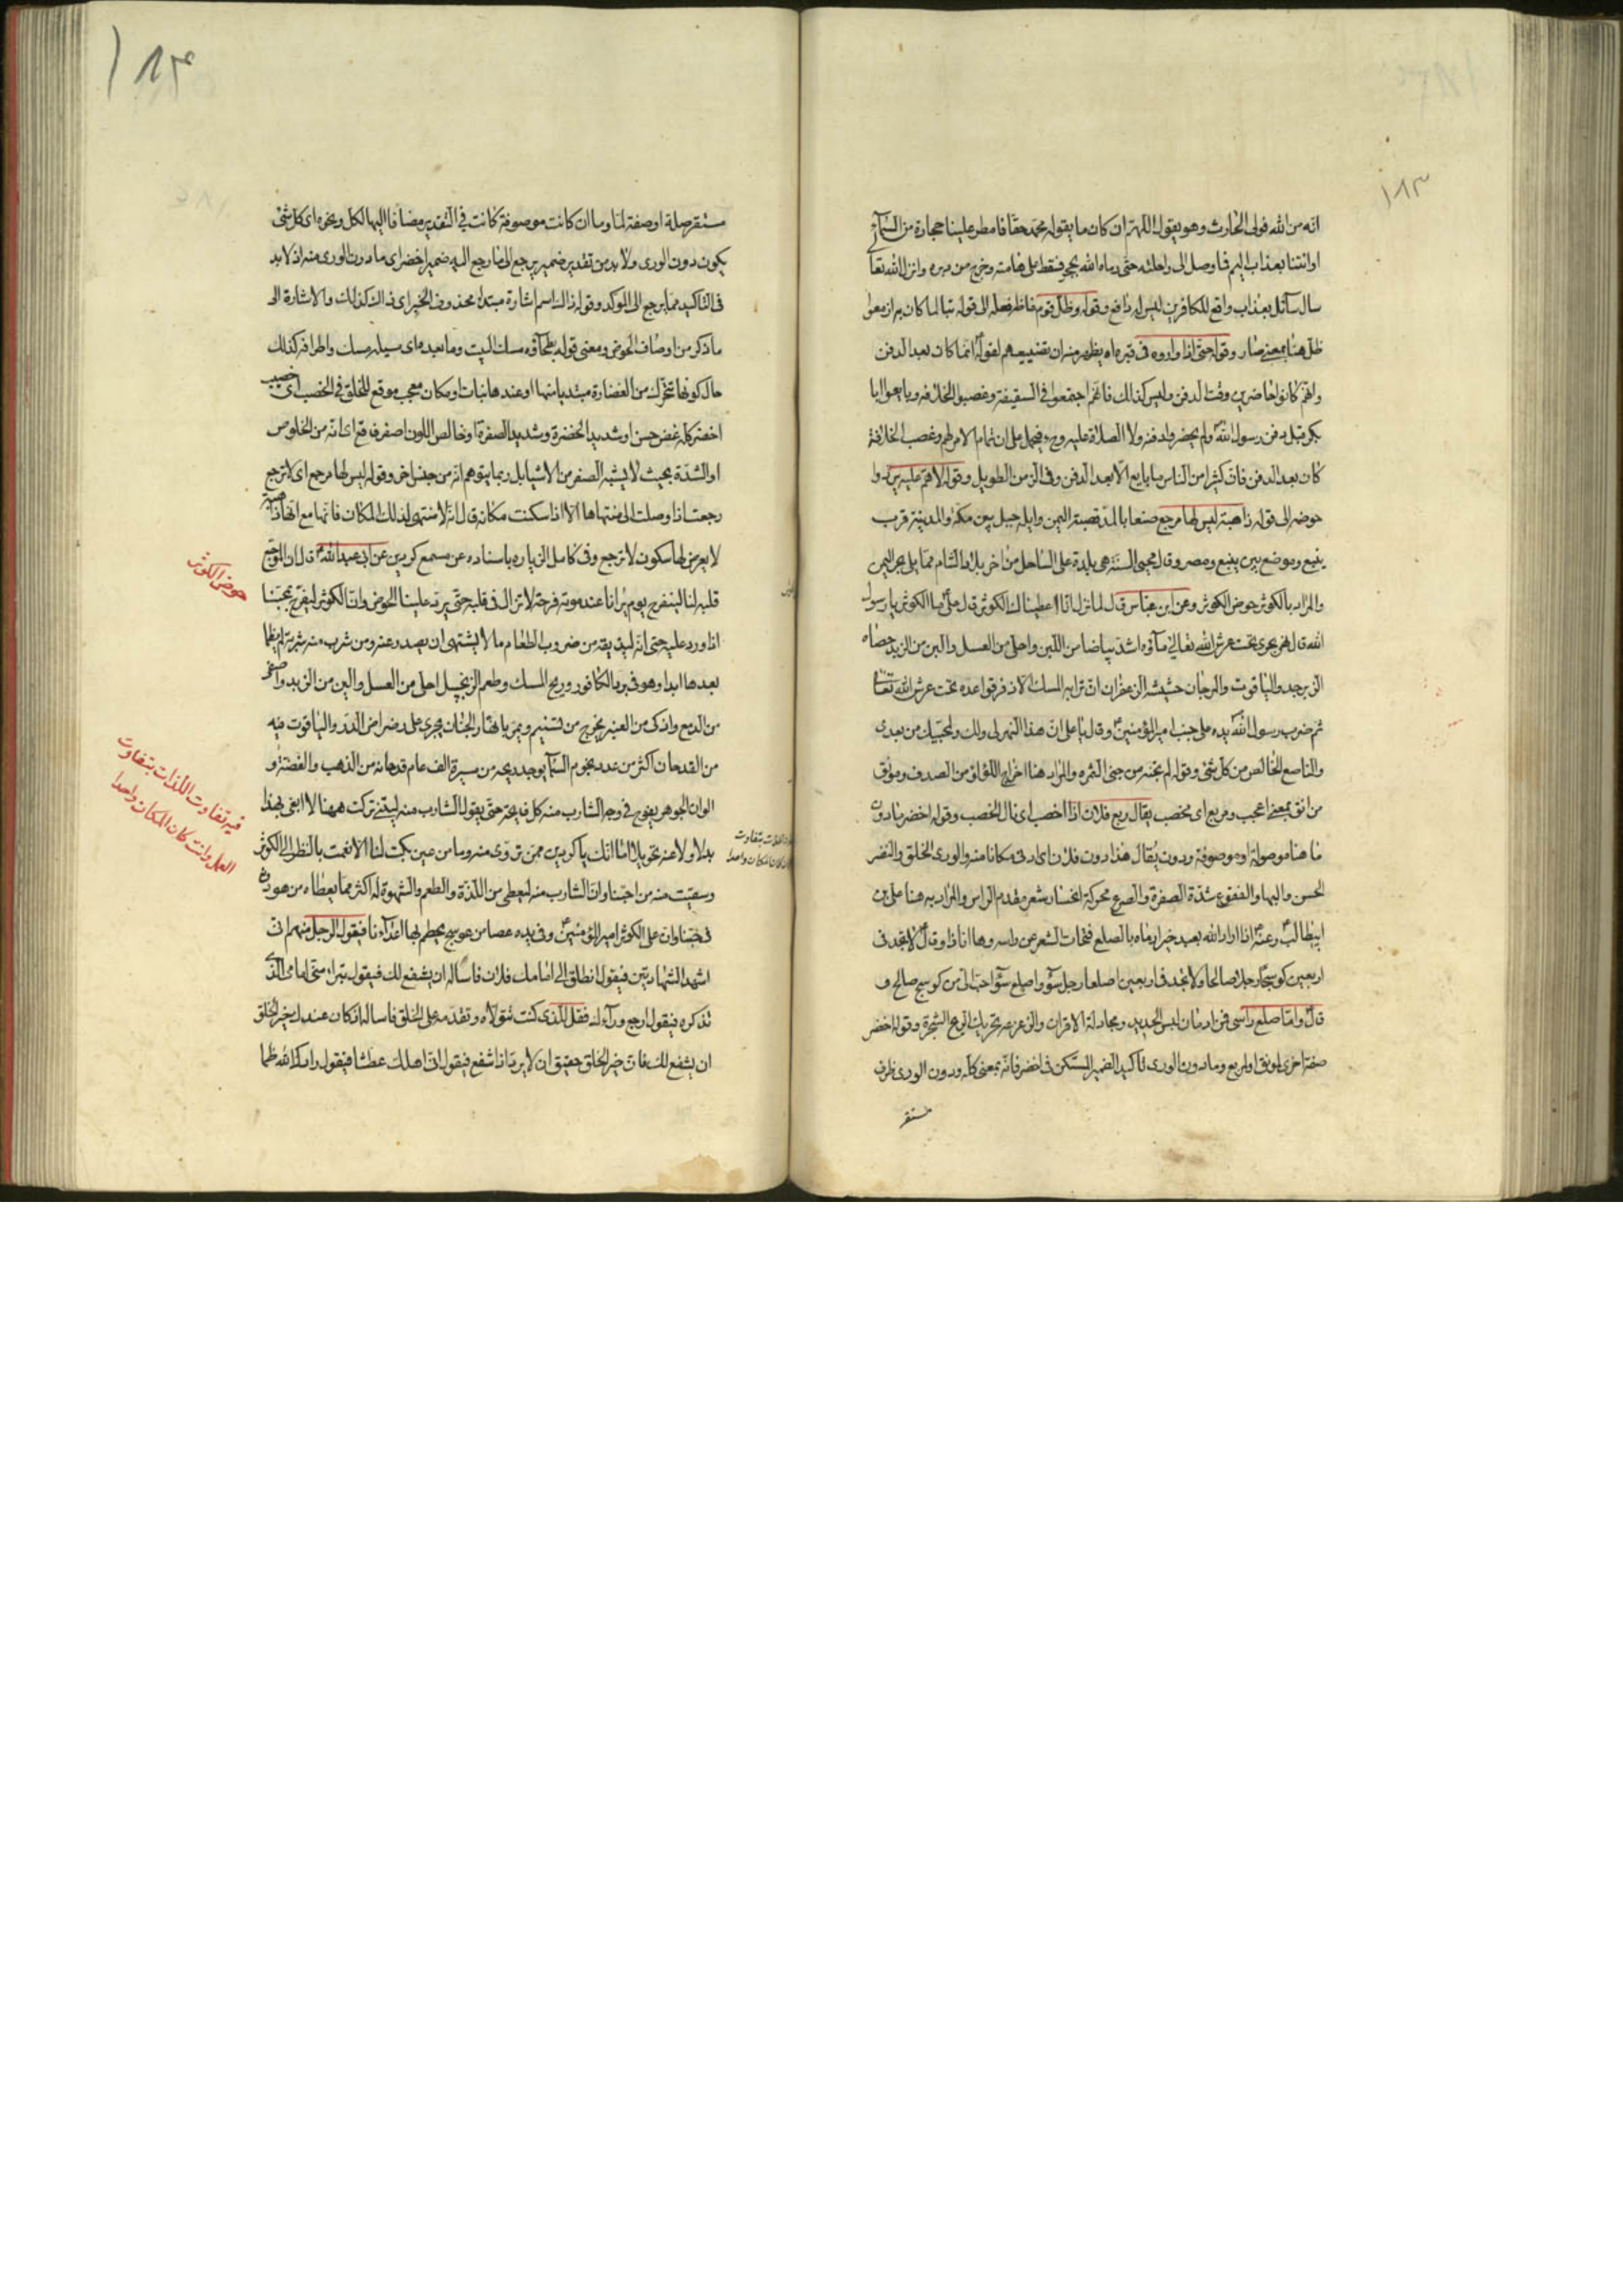 ١٨٣
انه من الله فولى الحارث وهو يقول اللهم ان كان ما يقوله محمد حقا فامطر علينا حجارة من السمآء
او ائتنا بعذاب اليم فما وصل الى راحلته حتى رماه الله بحجر فسقط على هامته وخرج من دبره وانزل الله تعا
سال سآئل بعذاب واقع للكافرين ليس له دافع وقوله وظل قوم غاظهم فعله الى قوله تبا لما كان به ازمعوا
ظل هنا بمعنى صار وقوله حتى اذا واروه فى قبره اه يظهر منه ان تضييعهم لقوله انما كان بعد الدفن
وانهم كانوا حاضرين وقت الدفن وليس كذلك فانهم اجتمعوا فى السقيفة وغصبوا الخلافة وبايعوا ابا
بكر قبل دفن رسول الله ولم يحضروا دفنه ولا الصلاة عليه وح فيحمل على ان تمام الامر لهم وغصب الخلافة
كان بعد الدفن فان كثيرا من الناس ما بايع الا بعد الدفن وفى الزمن الطويل وقوله لا هم عليه يردوا
حوضه الى قوله ذاهبة ليس لها مرجع صنعا بالمد قصبة اليمن وايلة جبل بين مكة والمدينة قريب
ينبع وموضع بين ينبع ومصر وقال محيى السنة هى بلدة على الساحل من اخر بلاد الشام مما يلى بحر اليمن
والمراد بالكوثر حوض الكوثر وعن ابن عباس قال لما نزل انا اعطيناك الكوثر قال على ما الكوثر يا رسول
الله قال نهر يجرى تحت عرش الله تعالى مآؤه اشد بياضا من اللبن واحلى من العسل والين من الزبد حصاه
الزبرجد والياقوت والمرجان حشيشه الزعفران ترابه المسك الاذفر قواعده تحت عرش الله تعا
ثم ضرب رسول الله يده على جنب امير المؤمنين وقال يا على ان هذا النهر لى ولك ولمحبيك من بعدى
والناصع الخالص من كل شئ وقوله لم يجنه من جنى الثمرة والمراد هنا اخراج اللؤلؤ من الصدف ومونق
من انق بمعنى اعجب ومربع اى مخصب يقال ربع فلان اذا اخصب اى نال الخصب وقوله اخضر ما دون
ما هنا موصولة او موصوفة ودون يقال هذا دون فلان اى ادنى مكانا منه والورى الخلق والنضر
الحسن والبها والفقوع شدة الصفرة والصرع محركة انحسار شعر مقدم الراس والمراد به هنا على بن
ابيطالب وعنه اذا اراد الله بعبد خيرا رماه بالصلع فتحات الشعر عن راسه وها انا ذا وقال لا تجد فى
اربعين كوسجا رجلا صالحا ولا تجد فى اربعين اصلعا رجل سوء واصلع سوء احب الى من كوسج صالح و
قال واما صلع راسى فمن ادمان لبس الحديد ومجادلة الاقران والزعزعه تحريك الريح الشجرة وقوله اخضر
صفة اخرى لمونق او لمربع وما دون الورى تاكيد الضمير المستكن فى اخضر فانه بمعنى كله ودون الورى ظرف
مستقر
١٨٤
مستقر صلة او صفة لما وما ان كانت موصوفة كانت فى التقدير مضافا اليها لكل ونحوه اى كل شئ
يكون دون الورى ولا بد من تقدير ضمير يرجع الى ما رجع اليه ضمير اخضر اى ما دون الورى منه اذ لا بد
فى التاكيد مما يرجع الى الموكد وقوله ذاك اسم اشارة مبتدا محذوف الخبر اى ذاك كذلك والاشارة الى
ما ذكر من اوصاف الحوض ومعنى قوله بطحآؤه مسك البيت وما بعده اى مسيله مسك واطرافه كذلك
حال كونها تتحرك من الغضارة مبتديا منها او عندها نبات او مكان معجب موقع للخلق فى الخصب اى خصيب
اخضر كله غض حسن او شديد الخضرة وشديد الصفرة او خالص اللون اصفر فاقع اى انه من الخلوص
او الشدة بحيث لا يشبه الصفر من الاشيا بل ربما يتوهم انه من جنس اخر وقوله ليس لها مرجع اى لا ترجع
رجعت اذا وصلت الى منتهاها الا اذا سكنت مكانه قال انه لا منتهى لذلك المكان فانها مع انها ذاهبة
لا يعرض لها سكون لا ترجع وفى كامل الزياره باسناده عن مسمع كردين عن ابى عبد الله قال ان الموجع
قلبه لنا ليفرح يوم يرانا عند موته فرحة لا تزال فى قلبه حتى يرد علينا الحوض وان الكوثر ليفرح بمحبنا
اذا ورد عليه حتى انه ليذيقه من ضروب الطعام ما لا يشتهى ان يصدر عنه ومن شرب منه شربة لم يظما
بعدها ابدا وهو فى برد الكافور وريح المسك وطعم الزنجبيل احلى من العسل والين من الزبد واصفى
من الدمع واذكى من العنبر يخرج من تسنيم ويمر بانهار الجنان يجرى على رضراض الدر والياقوت فيه
من القدحان اكثر من عدد نجوم السمآء يوجد ريحه من مسيرة الف عام قدحانه من الذهب والفضة و
الوان الجوهر يفوح فى وجه الشارب منه كل فايحة حتى يقول الشارب منه ليتنى تركت ههنا لا ابغى بهذا
بدلا ولا عنه تحويلا اما انك يا كردين ممن تروى منه وما من عين بكت لنا الا نعمت بالنظر الى الكوثر
وسقيت منه من احبنا وان الشارب منه ليعطى من اللذة والطعم والشهوة له اكثر مما يعطاه من هو دونه
فى حبنا وان على الكوثر امير المؤمنين وفى يده عصا من عوسج يحطم بها اعدآءنا فيقول الرجل منهم انى
اشهد الشهادتين فيقول انطلق الى امامك فلان فاساله ان يشفع لك فيقول تبرا منى امامى الذى
تذكره فيقول ارجع ورآءك فقل للذى كنت تتولاه وتقدمه على الخلق فاساله اذ كان عندك خير الخلق
ان يشفع لك فان خير الخلق حقيق ان لا يرد اذا شفع فيقول انى اهلك عطشا فيقول زادك الله ظما
حوض الكوثر
فيه تفاوت اللذات بتفاوت
العمل وان كان المكان واحدا